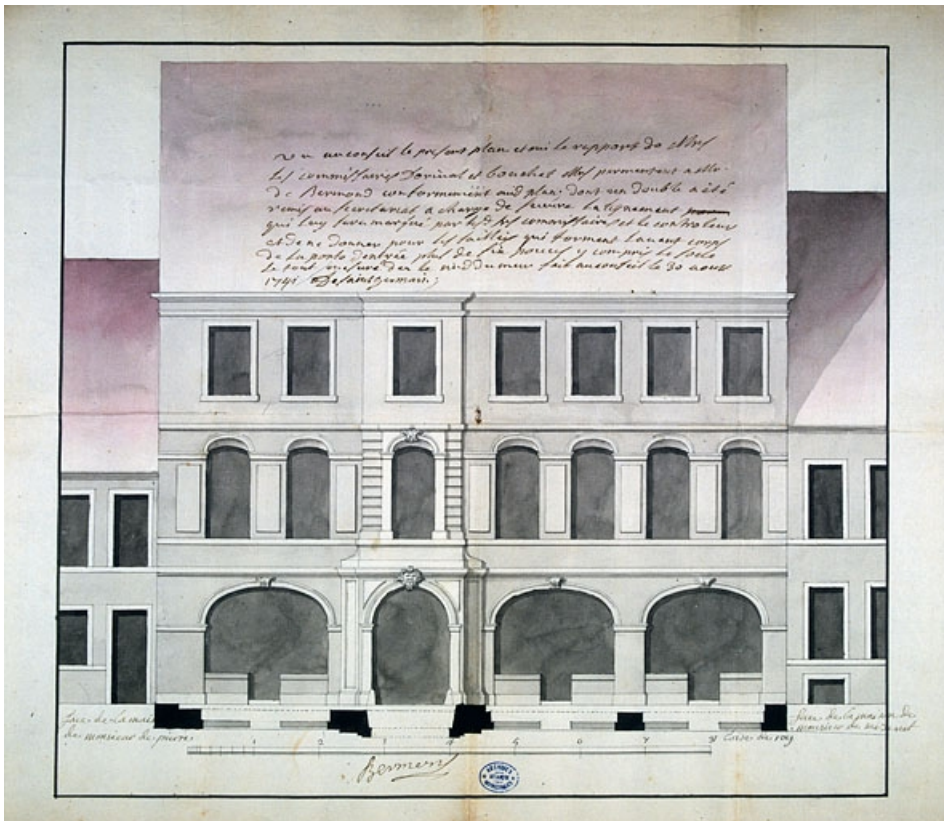 Vu au conseil le present plan et oui le rapport de Mrs
les commissaires Dorival et bouchet Mrs permettent a Mr
De Bermond conformement aud plan dont un double a été
remis au secretariat a charge de suivre lalignement
qui luy sera marqué par lesd srs commissaires et le controleur
et de ne donner pour les saillies qui forment lavant corps
de la porte dentrée plus de six pouces y compris le socle
le tout mesuré du nud du mur fait au conseil le 30 aoust
1741 Desaintgermain
face de la maison
de monsieur de pierre
1 2 3 4 5 6 7 8 toises du roy
face de la maison de
monsieur de
Bermond
ARCHIVES